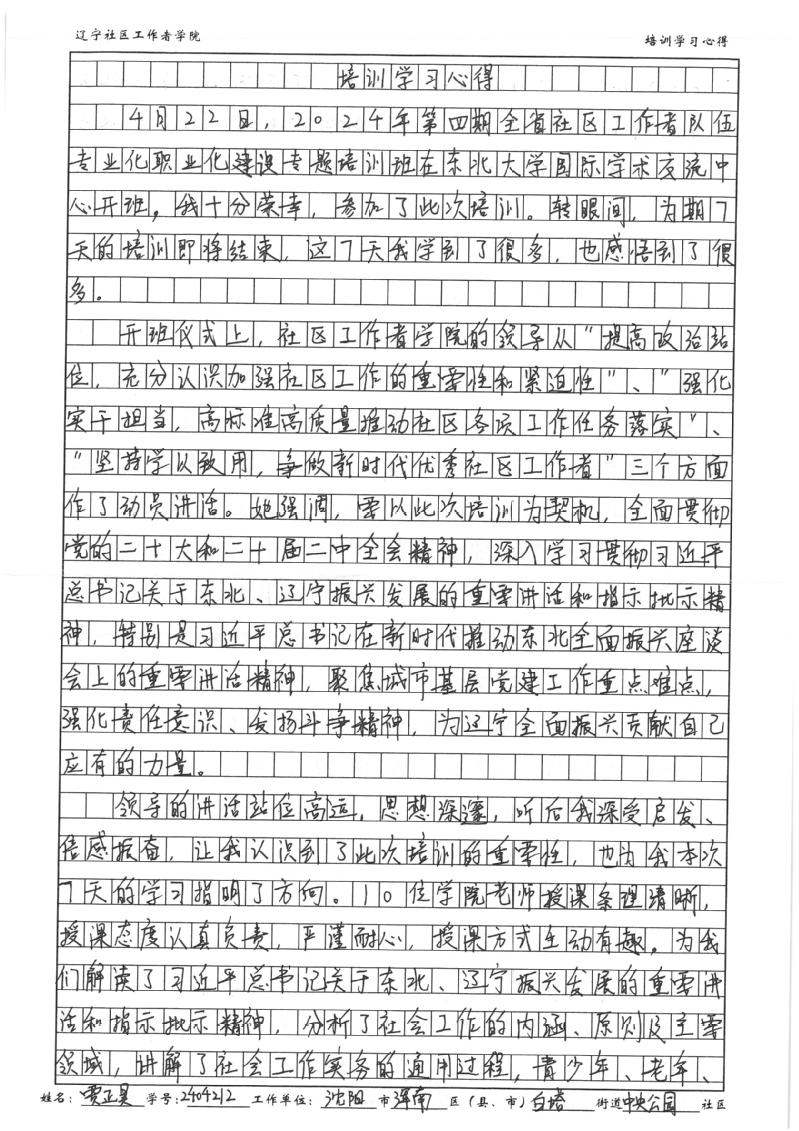 辽宁社区工作者学院
培训学习心得
培训学习心得
4月22日，2024年第四期全省社区工作者队伍
专业化职业化建设专题培训班在东北大学国际学术交流中
心开班，我十分荣幸，参加了此次培训。转眼间，为期7
天的培训即将结束，这7天我学到了很多，也感悟到了很
多。
开班仪式上，社区工作者学院的领导从“提高政治站
位，充分认识加强社区工作的重要性和紧迫性”、“强化
实干担当，高标准高质量推动社区各项工作任务落实”、
“坚持学以致用，争做新时代优秀社区工作者”三个方面
作了动员讲话。她强调，要以此次培训为契机，全面贯彻
党的二十大和二十届二中全会精神，深入学习贯彻习近平
总书记关于东北、辽宁振兴发展的重要讲话和指示批示精
神，特别是习近平总书记在新时代推动东北全面振兴座谈
会上的重要讲话精神，聚焦城市基层党建工作重点难点，
强化责任意识、发扬斗争精神，为辽宁全面振兴贡献自己
应有的力量。
领导的讲话站位高远，思想深邃，听后我深受启发、
倍感振奋，让我认识到了此次培训的重要性，也为我本次
7天的学习指明了方向。10位学院老师授课条理清晰，
授课态度认真负责，严谨耐心，授课方式生动有趣。为我
们解读了习近平总书记关于东北、辽宁振兴发展的重要讲
话和指示批示精神，分析了社会工作的内涵、原则及主要
领域，讲解了社会工作实务的通用过程，青少年、老年、
姓名：贾正昊 学号：2404212 工作单位：沈阳 市 浑南 区（县、市）白塔 街道 中央公园 社区